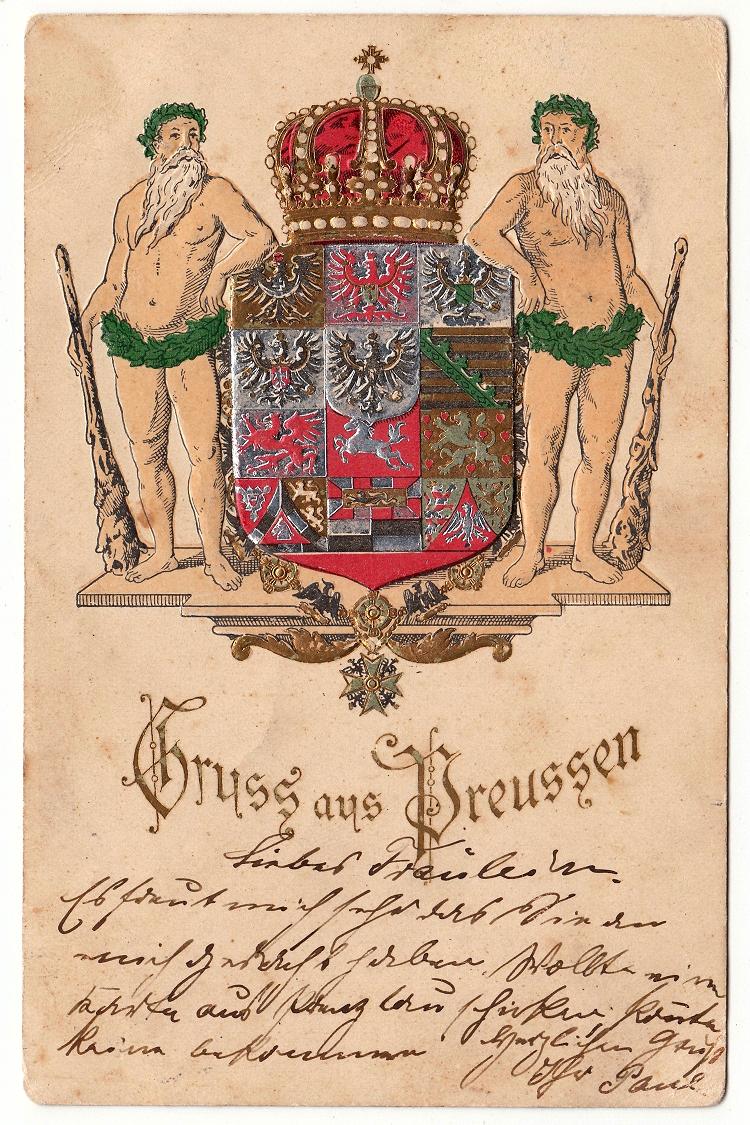 Gruss aus Preussen
Liebes Fräulein.
Es freut mich sehr das Sie an
mich gedacht haben. Wollte eine
Karte aus Prenzlau schicken. Konnte
keine bekommen Herzlichen Gruß
Ihr Paul